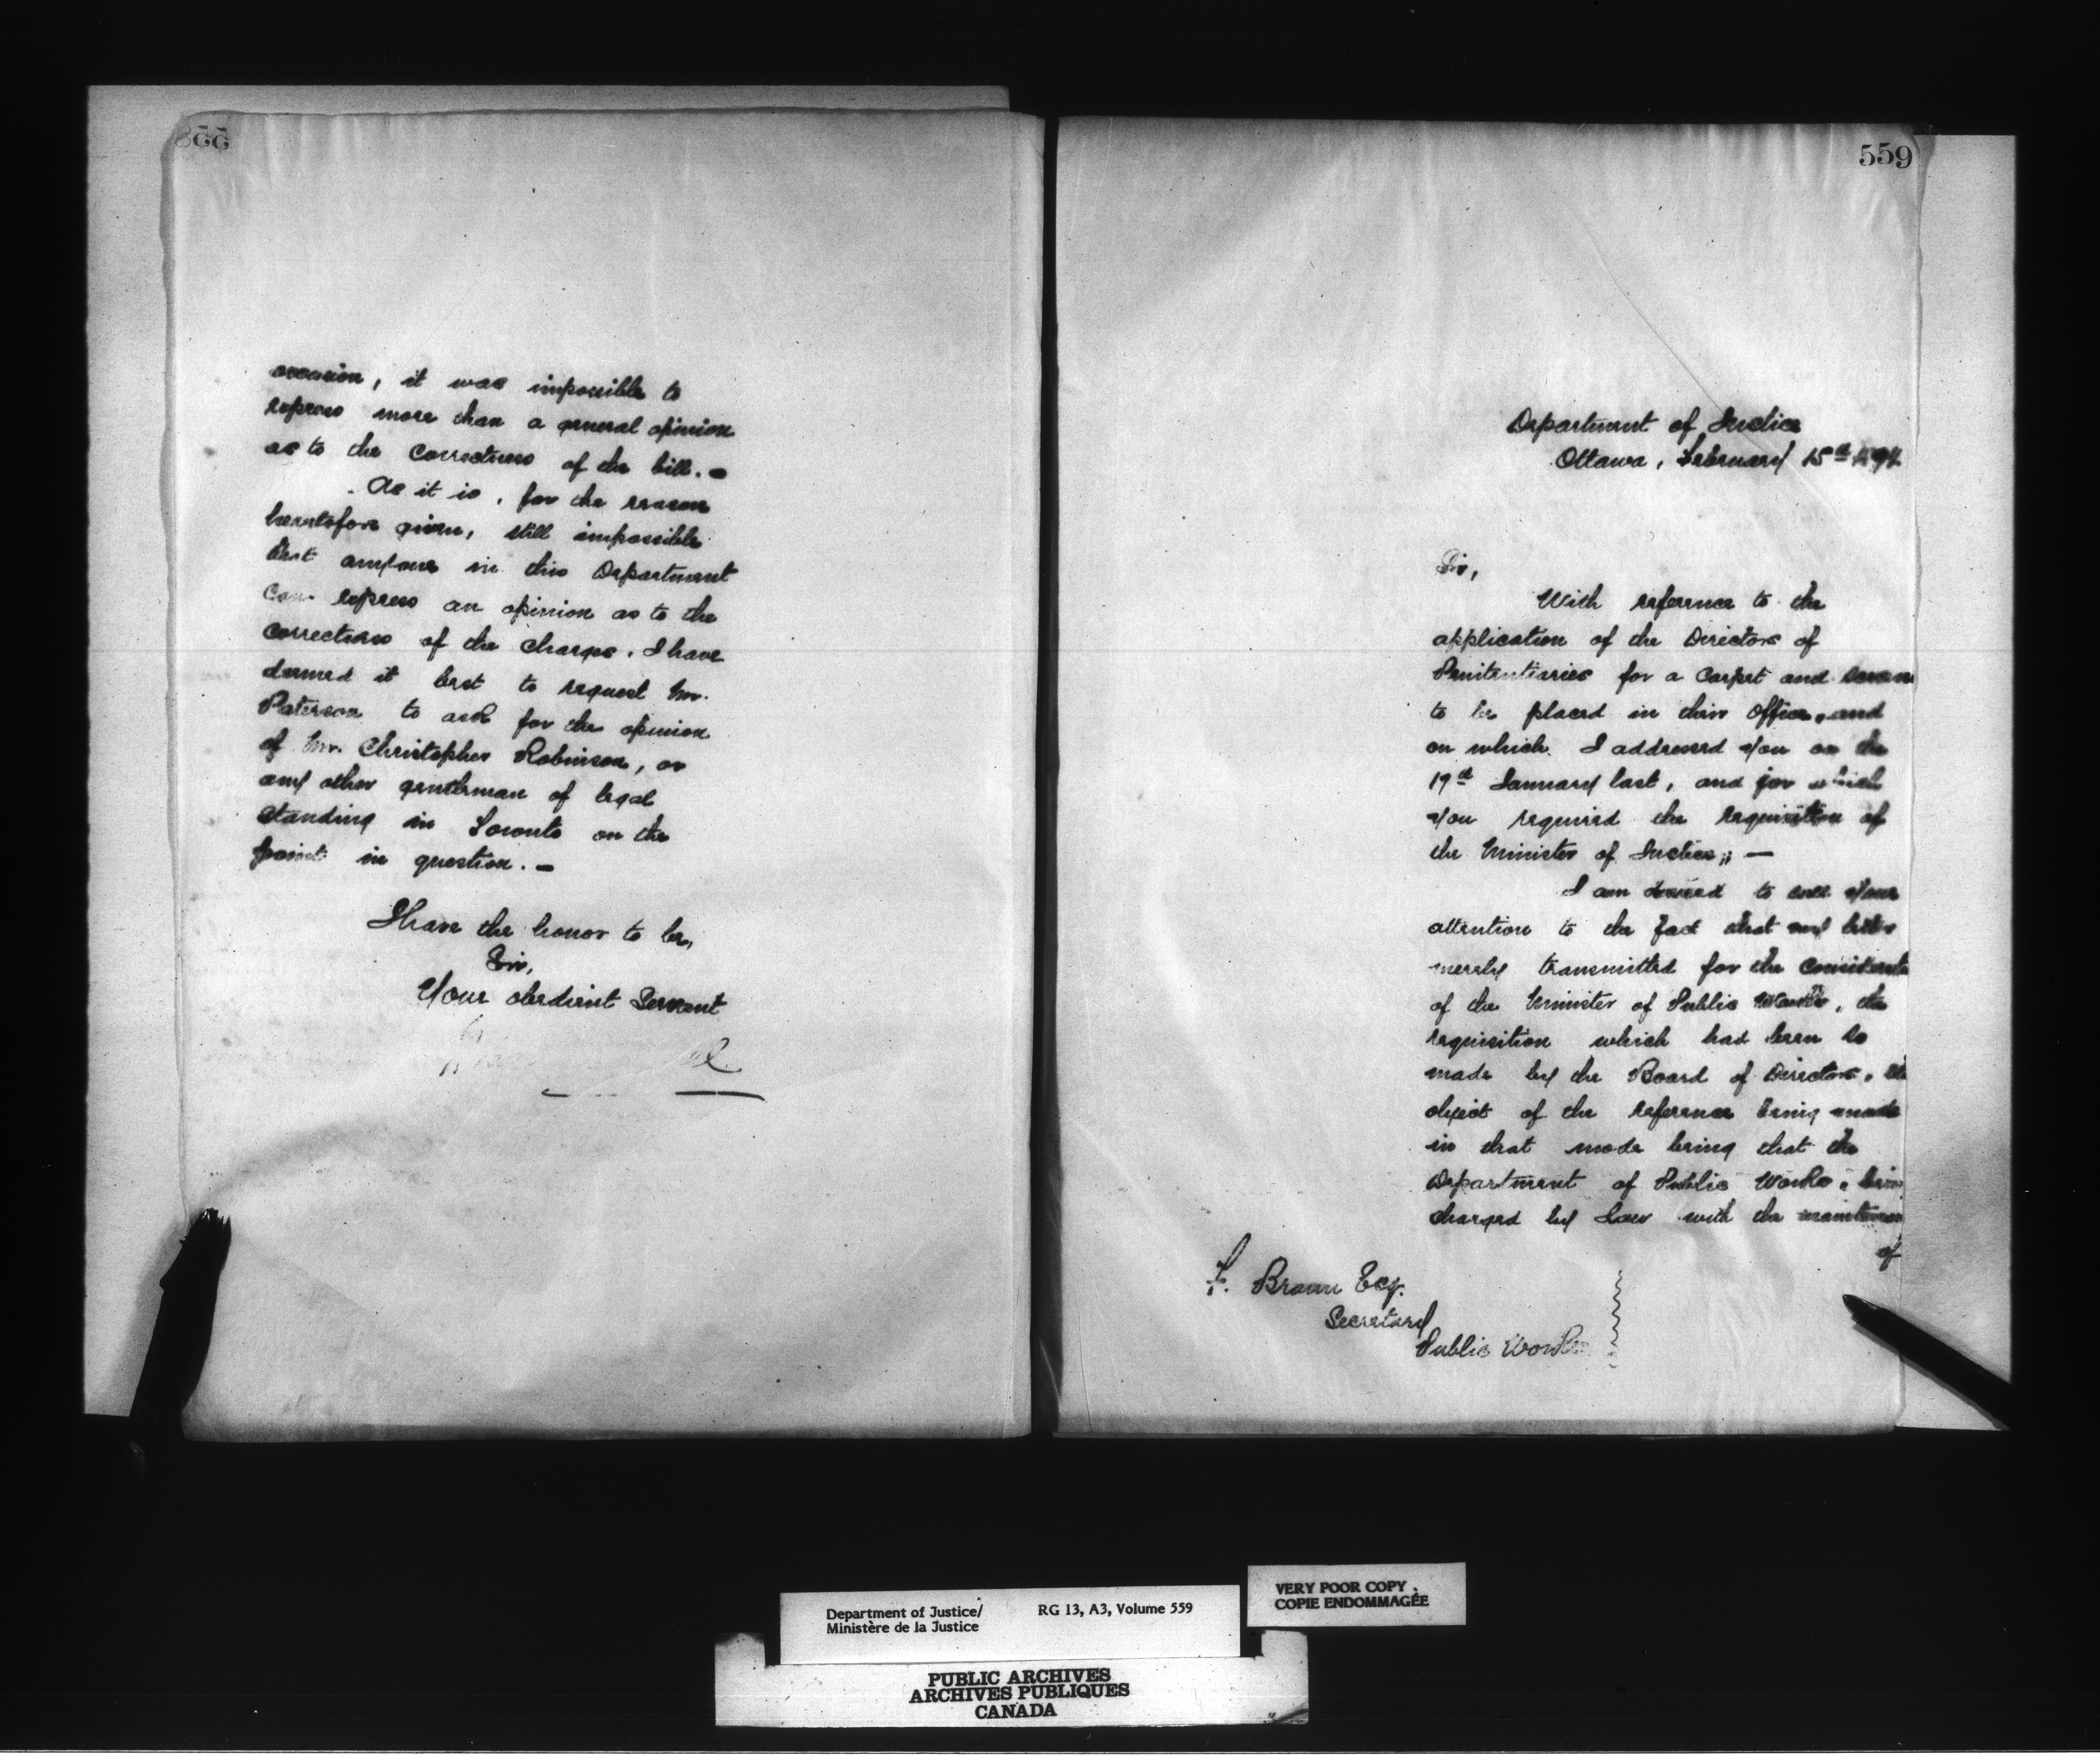 558
occasion, it was impossible to
express more than a general opinion
as to the correctness of the bill. –
As it is, for the reason
heretofore given, still impossible
that anyone in this Department
can express an opinion as to the
correctness of the charges. I have
deemed it best to request Mr.
Paterson to ask for the opinion
of Mr. Christopher Robinson, or
any other gentleman of legal
standing in Toronto on the
point in question. –
I have the honor to be,
Sir,
Your obedient Servant
559
Department of Justice
Ottawa, February 15th
Sir,
With reference to the
application of the Directors of
Penitentiaries for a carpet and
to be placed in their office, and
on which I addressed you on the
19th January last, and for which
you required the requisition of
the Minister of Justice; –
I am desired to call your
attention to the fact that my letter
merely transmitted for the
of the Minister of Public Works, the
requisition which had been so
made by the Board of Directors, the
object of the reference being made
in that mode being that the
Department of Public Works, being
charged by Law with the
of
F. Braun Esq.
Secretary
Public Works
Department of Justice/ RG 13, A3, Volume 559
Ministère de la Justice
VERY POOR COPY
COPIE ENDOMMAGÉE
PUBLIC ARCHIVES
ARCHIVES PUBLIQUES
CANADA